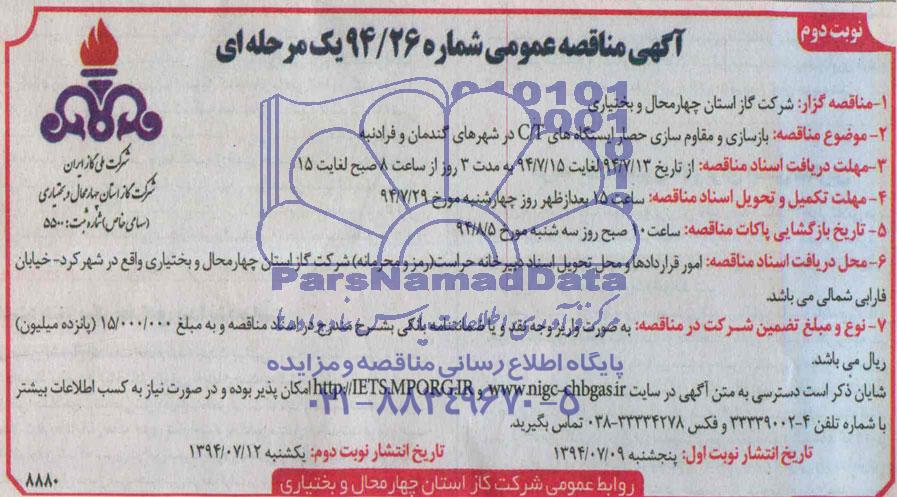 نوبت دوم
آگهی مناقصه عمومی شماره ۹۴/۲۶ یک مرحله ای
شرکت ملی گاز ایران
شرکت گاز استان چهارمحال و بختیاری
(سهامی خاص) شماره ثبت: ۵۵۰۰
۱-مناقصه گزار: شرکت گاز استان چهارمحال و بختیاری
۲- موضوع مناقصه: بازسازی و مقاوم سازی حصار ایستگاه های C/T در شهرهای گندمان و فرادنبه
۳-مهلت دریافت اسناد مناقصه: از تاریخ ۹۴/۷/۱۳ لغایت ۹۴/۷/۱۵ به مدت ۳ روز از ساعت ۸ صبح لغایت ۱۵
۴- مهلت تکمیل و تحویل اسناد مناقصه: ساعت ۱۵ بعدازظهر روز چهارشنبه مورخ ۹۴/۷/۲۹
۵- تاریخ بازگشایی پاکات مناقصه: ساعت ۱۰ صبح روز سه شنبه مورخ ۹۴/۸/۵
۶-محل دریافت اسناد مناقصه: امور قراردادها و محل تحویل اسناد دبیرخانه حراست (رمز و محرمانه) شرکت گاز استان چهارمحال و بختیاری واقع در شهر کرد- خیابان
فارابی شمالی می باشد.
۷- نوع و مبلغ تضمین شرکت در مناقصه: به صورت واریز وجه نقد و یا ضمانتنامه بانکی بشرح مندرج در اسناد مناقصه و به مبلغ ۱۵/۰۰۰/۰۰۰ (پانزده میلیون)
ریال می باشد.
شایان ذکر است دسترسی به متن آگهی در سایت www.nigc-chbgas.ir و http://IETS.MPORG.IR امکان پذیر بوده و در صورت نیاز به کسب اطلاعات بیشتر
با شماره تلفن ۴-۳۳۳۳۹۰۰۲ و فکس ۳۳۳۳۴۲۷۸-۰۳۸ تماس بگیرید.
تاریخ انتشار نوبت اول: پنجشنبه ۱۳۹۴/۰۷/۰۹ تاریخ انتشار نوبت دوم: یکشنبه ۱۳۹۴/۰۷/۱۲
روابط عمومی شرکت گاز استان چهارمحال و بختیاری
۸۸۸۰
ParsNamadData
پایگاه اطلاع رسانی مناقصه و مزایده
۰۲۱-۸۸۳۴۹۶۷۰-۵